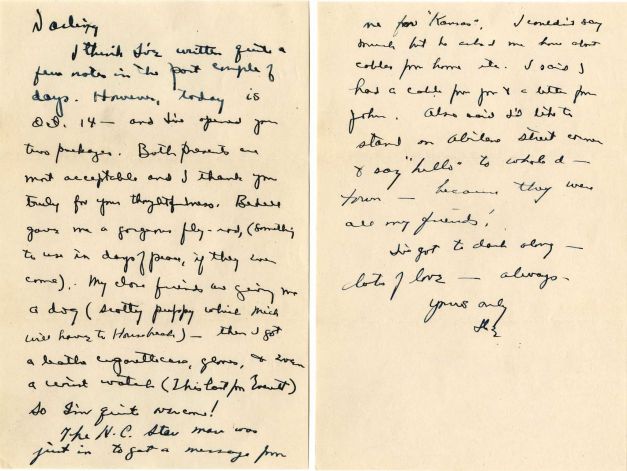 Darling
I think I've written quite a
few notes in the past couple of
days. However, today is
Oct. 14 — and I've opened your
two packages. Both presents are
most acceptable and I thank you
truly for your thoughtfulness.
gave me a gorgeous fly-rod, (something
to use in days of peace, if they ever
come). My close friends are giving me
a dog (scotty puppy which Mick
will have to Housebreak) — then I got
a leather cigarette case, gloves, & even
a wrist watch (This last from Everett)
So I'm quite overcome!
The N.C. Star man was
just in to get a message from
me for "Kansas". I couldn't say
much but he asked me how about
cables from home etc. I said I
had a cable from you & a letter from
John. Also said I'd like to
stand on Abilene street corner
& say "hello" to whole d—
town — because they were
all my friends!
I've got to dash along —
lots of love — always —
yours only
Ike